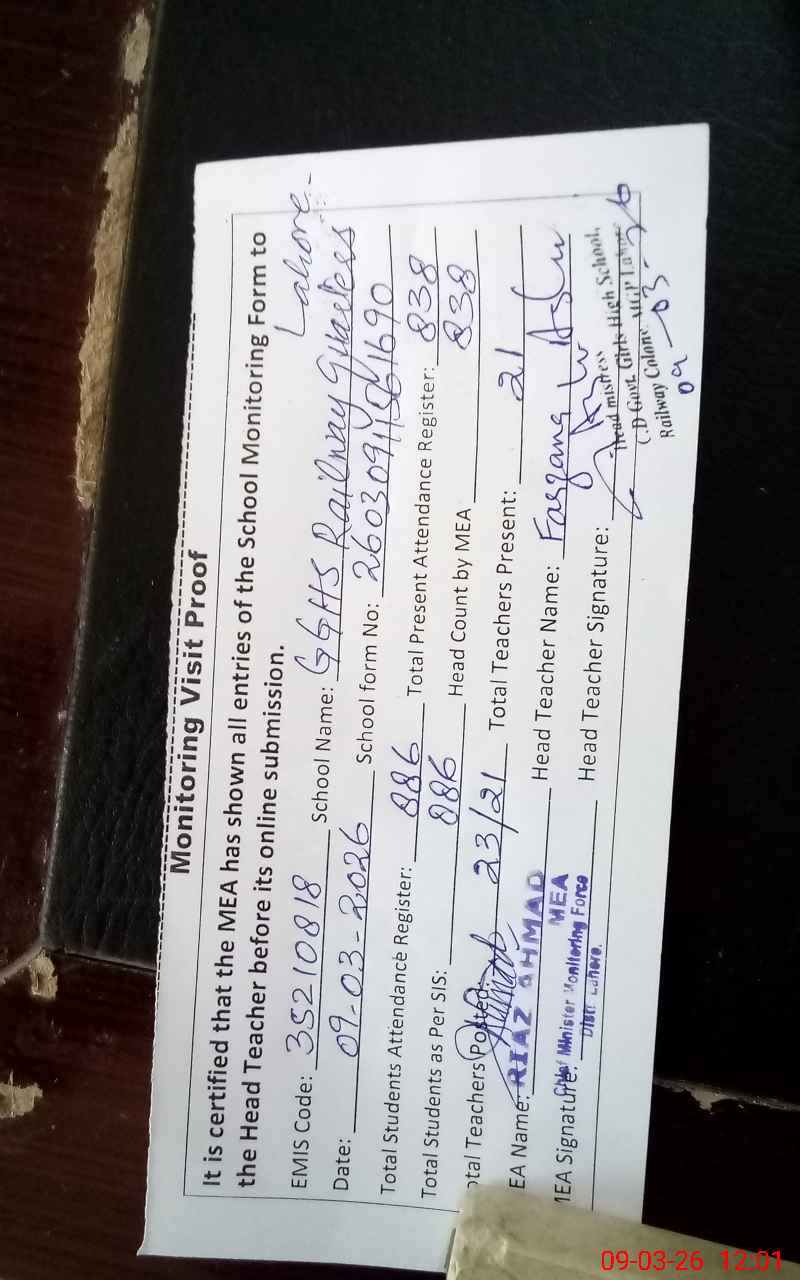 Monitoring Visit Proof
It is certified that the MEA has shown all entries of the School Monitoring Form to
the Head Teacher before its online submission.
EMIS Code: 35210818 School Name: GGHS Railway Quarters Lahore.
Date: 09-03-2026 School form No:
Total Students Attendance Register: 886 Total Present Attendance Register: 838
Total Students as Per SIS: 886 Head Count by MEA 838
otal Teachers Posted: 23/21 Total Teachers Present: 21
EA Name: RIAZ AHMAD Head Teacher Name:
MEA
MEA Signature: Head Teacher Signature:
Chief Minister Monitoring Force
Distt: Lahore.
Head mistress
C.D Govt. Girls High School,
Railway Colony Lahore
09-03-26
09-03-26 12:01